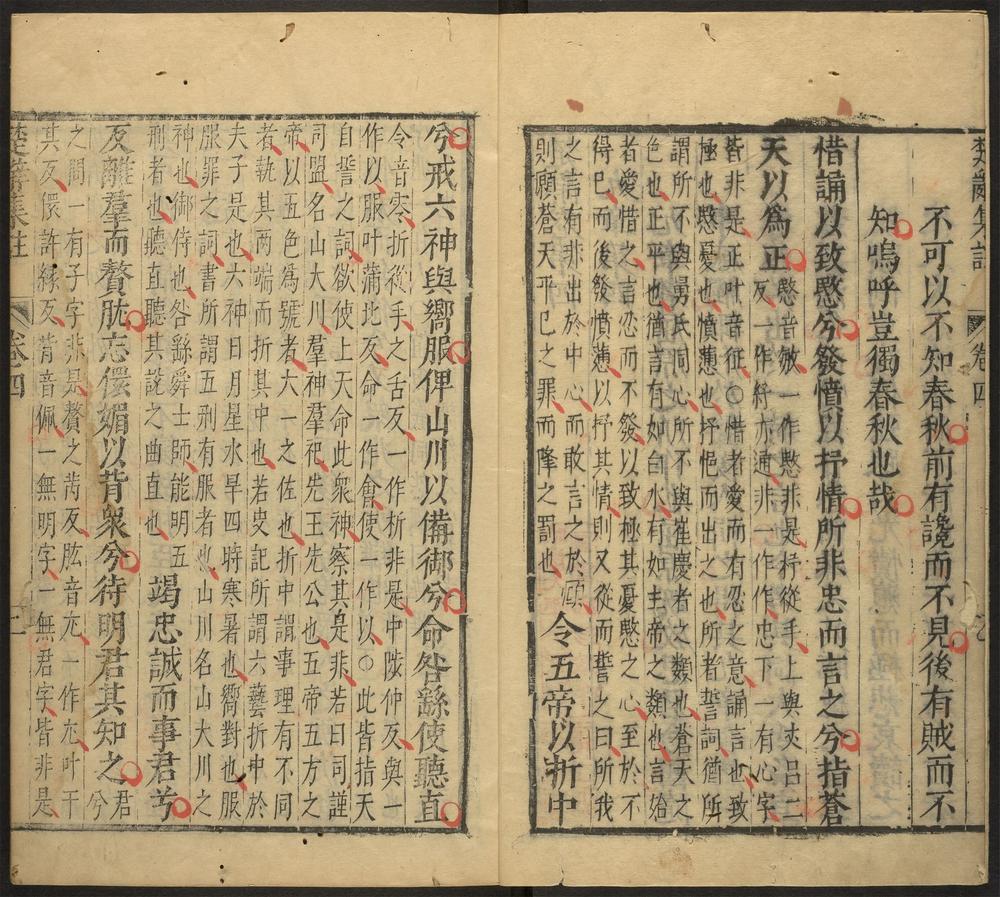 楚辭集註 卷四
不可以不知春秋前有讒而不見後有賊而不
知嗚呼豈獨春秋也哉
惜誦以致愍兮發憤以抒情所非忠而言之兮指蒼
天以爲正
愍音敏一作慜非是抒從手上與丈吕二
反一作紓亦通非一作作忠下一有心字
皆非是正叶音征○惜者愛而有忍之意誦言也致
極也愍憂也憤懣也抒挹而出之也所者誓詞猶所
謂所不與舅氏同心所不與崔慶者之類也蒼天之
色也正平也猶言有如白水有如上帝之類也言始
者愛惜之言忍而不發以致極其憂愍之心至於不
得已而後發憤懣以抒其情則又從而誓之曰所我
之言有非出於中心而敢言之於
則願蒼天平已之罪而降之罰也
令五帝以折中
兮戒六神與嚮服俾山川以備御兮命咎繇使聽直
令音零折從手之舌反一作析非是中陟仲反與一
作以服叶蒲北反命一作會使一作以○此皆指天
自誓之詞欲使上天命此衆神察其是非若曰司謹
司盟名山大川羣神羣祀先王先公也五帝五方之
帝以五色爲號者太一之佐也折中謂事理有不同
者執其兩端而折其中也若史記所謂六藝折中於
夫子是也六神日月星水旱四時寒暑也嚮對也服
服罪之詞書所謂五刑有服者也山川名山大川之
神也御侍也咎繇舜士師能明五
刑者也聽直聽其說之曲直也
竭忠誠而事君兮
反離羣而贅肬忘儇媚以背衆兮待明君其知之
君兮
之間一有子字非是贅之芮反肬音尤一作尤叶于
其反儇許緣反背音佩一無明字一無君字皆非是
楚辭集註 卷四 二